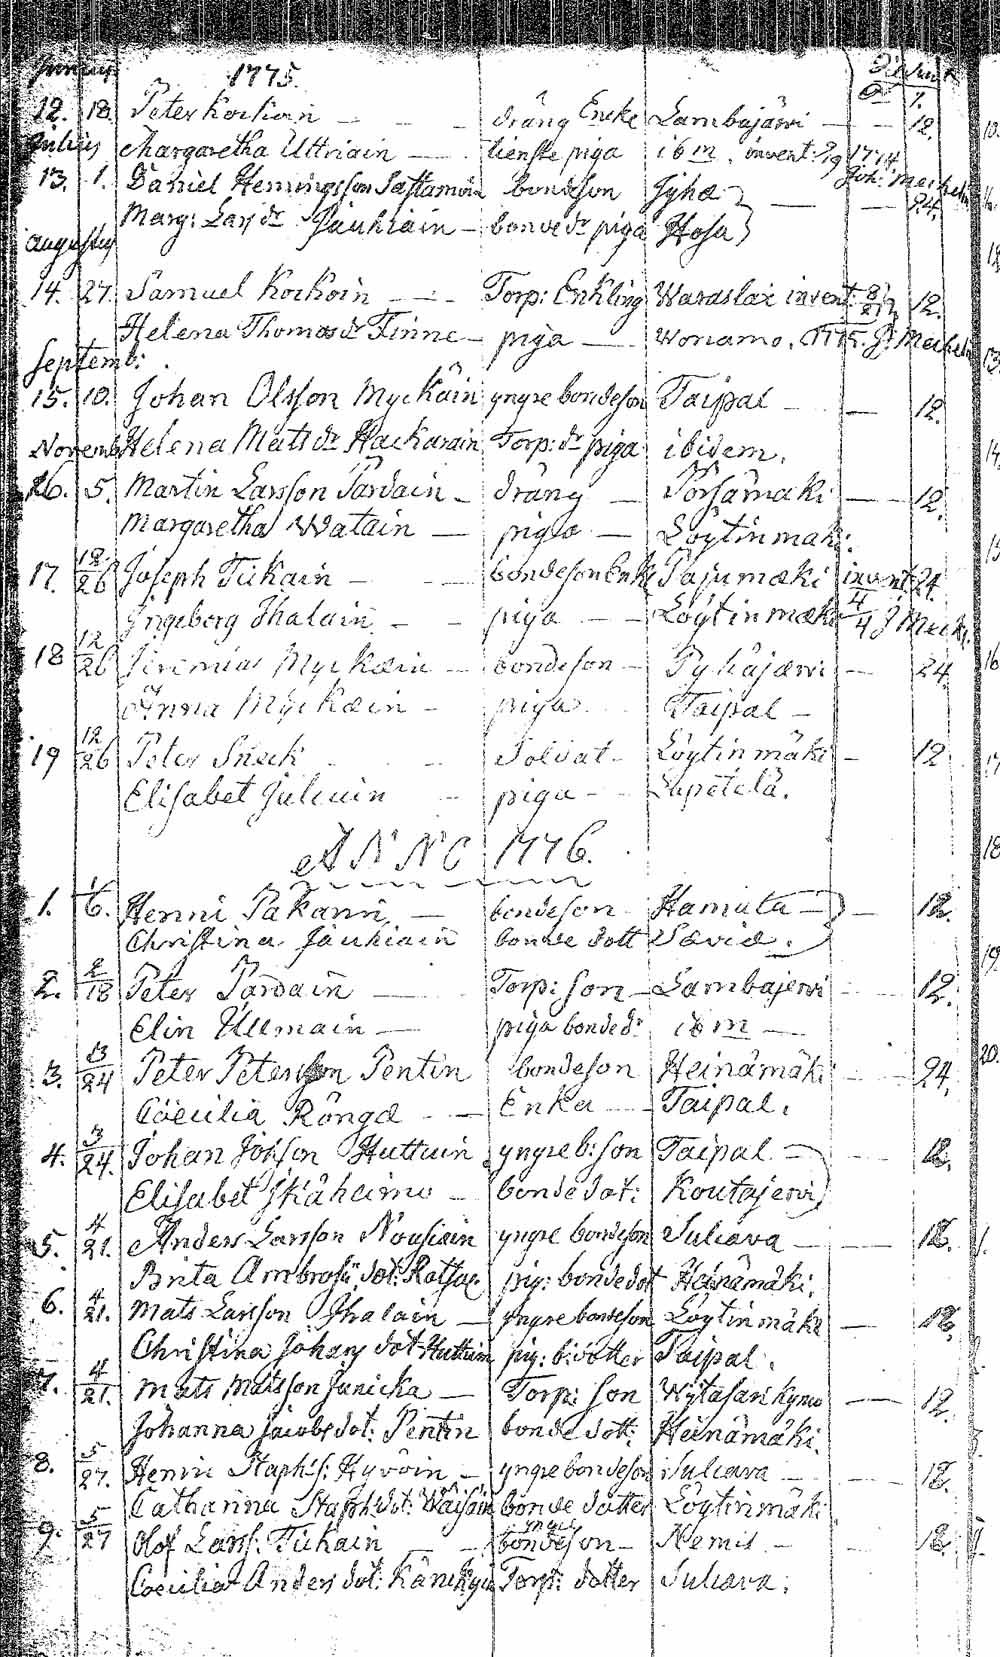 Junius 1775.
12. 18. Peter Korkoin - - - dräng Encke Lambajärvi - - 12.
Julius Margaretha Uttriain - tienste piga ibm. invent: 1774
13. 1. Daniel Hemingsson Sastamoin bondeson Jyhæ - - 24.
Marg: Lars dr Jäuhiain - bonde dr piga Hosu
Augustus
14. 27. Samuel Korkoin - - Torp: Enkling Waraslax invent 8/21 12.
Helena Thomas dr Finne - piga - Wonamo. 1775. J: Mechelin
Septemb:
15. 10. Johan Olsson Myckäin yngre bondeson Taipal - - 12.
Novemb. Helena Matts dr Hackarain Torp: dr piga ibidem.
16. 5. Martin Larsson Pardain - dräng - Porsämäki - - 12.
Margaretha Watain - piga - Löytinmäki.
17. 12/26 Joseph Tickain - - bondeson Enkl Pajumæki invent. 24.
Ingeborg Ihalain - - piga - - Löytinmæki 4/4 J Mech.
18 12/26 Jeremias Myckæin - bondeson - Pyhäjærvi - 24.
Anna Myckæin - piga Taipal -
19 12/26 Peter Sneck - - Soldat - Löytinmäki - 12
Elisabet Julcuin - piga - - Lepetelä.
ANNO 1776.
1. 1/6. Henric Pakarin - bondeson - Hamula - - 12.
Christina Jäuhiain bonde dott Sævia.
2. 2/18 Peter Pardain - Torp: son - Lambajervi - - 12.
Elin Ullmain - piga bonde dr ibm -
3. 3/24 Peter Petersson Pentin bondeson Heinämäki - - 24.
Coecilia Röngæ - - Enka - - Taipal.
4. 3/24. Johan Johsson Huttuin yngre b: son Taipal - 12.
Elisabet Ikäheimo - bonde dot: Koutajervi
5. 4/21. Anders Larsson Nousiain yngre bondeson Sulcava - - 12.
Brita Ambrosii dot: Ratsac pig: bonde dot Heinämäki.
6. 4/21. Mats Larsson Ihalain - yngre bondeson Löytinmäki - 12.
Christina Johans dot Huttuin pig: b: dotter Taipal.
7. 4/21. Mats Matsson Junicka - Torp: son Wytasarikymo - 12.
Johanna Jacobs dot: Pentin bonde dott: Heinämäki.
8. 5/27. Henric Staph: s: Hyvöin - yngre bondeson Sulcava - - 12.
Catharina Staph: dot: Wäisäin bonde dotter Löytinmäki
9. 5/27 Olof Larss: Tickain - - yngre bondeson - Nemis - - 12.
Coecilia Anders dot: Torp: dotter Sulcava.